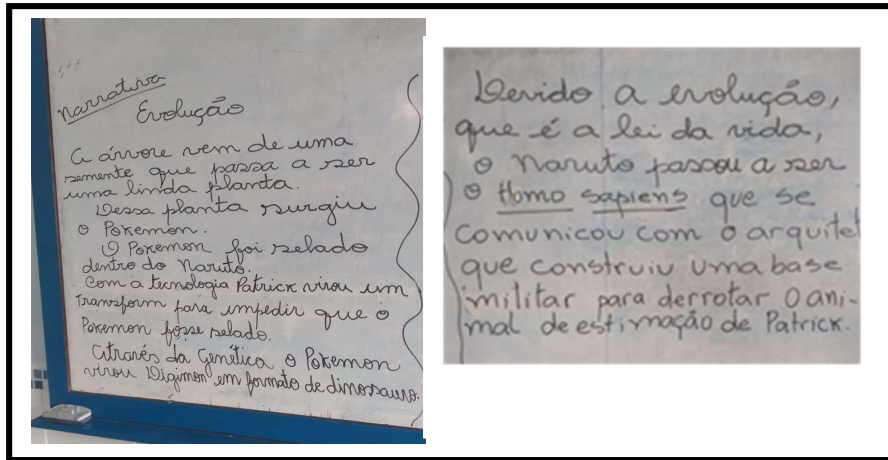 Narrativa
Evolução
A árvore vem de uma
semente que passa a ser
uma linda planta.
Dessa planta surgiu
o Pokemon.
O Pokemon foi selado
dentro do Naruto.
Com a tecnologia Patrick virou um
Transform para impedir que o
Pokemon fosse selado.
Através da genética o Pokemon
virou Digimon em formato de dinossauro.
Devido a evolução,
que é a lei da vida,
o Naruto passou a ser
o Homo sapiens que se
comunicou com o arquitet
que construiu uma base
militar para derrotar o ani-
mal de estimação de Patrick.